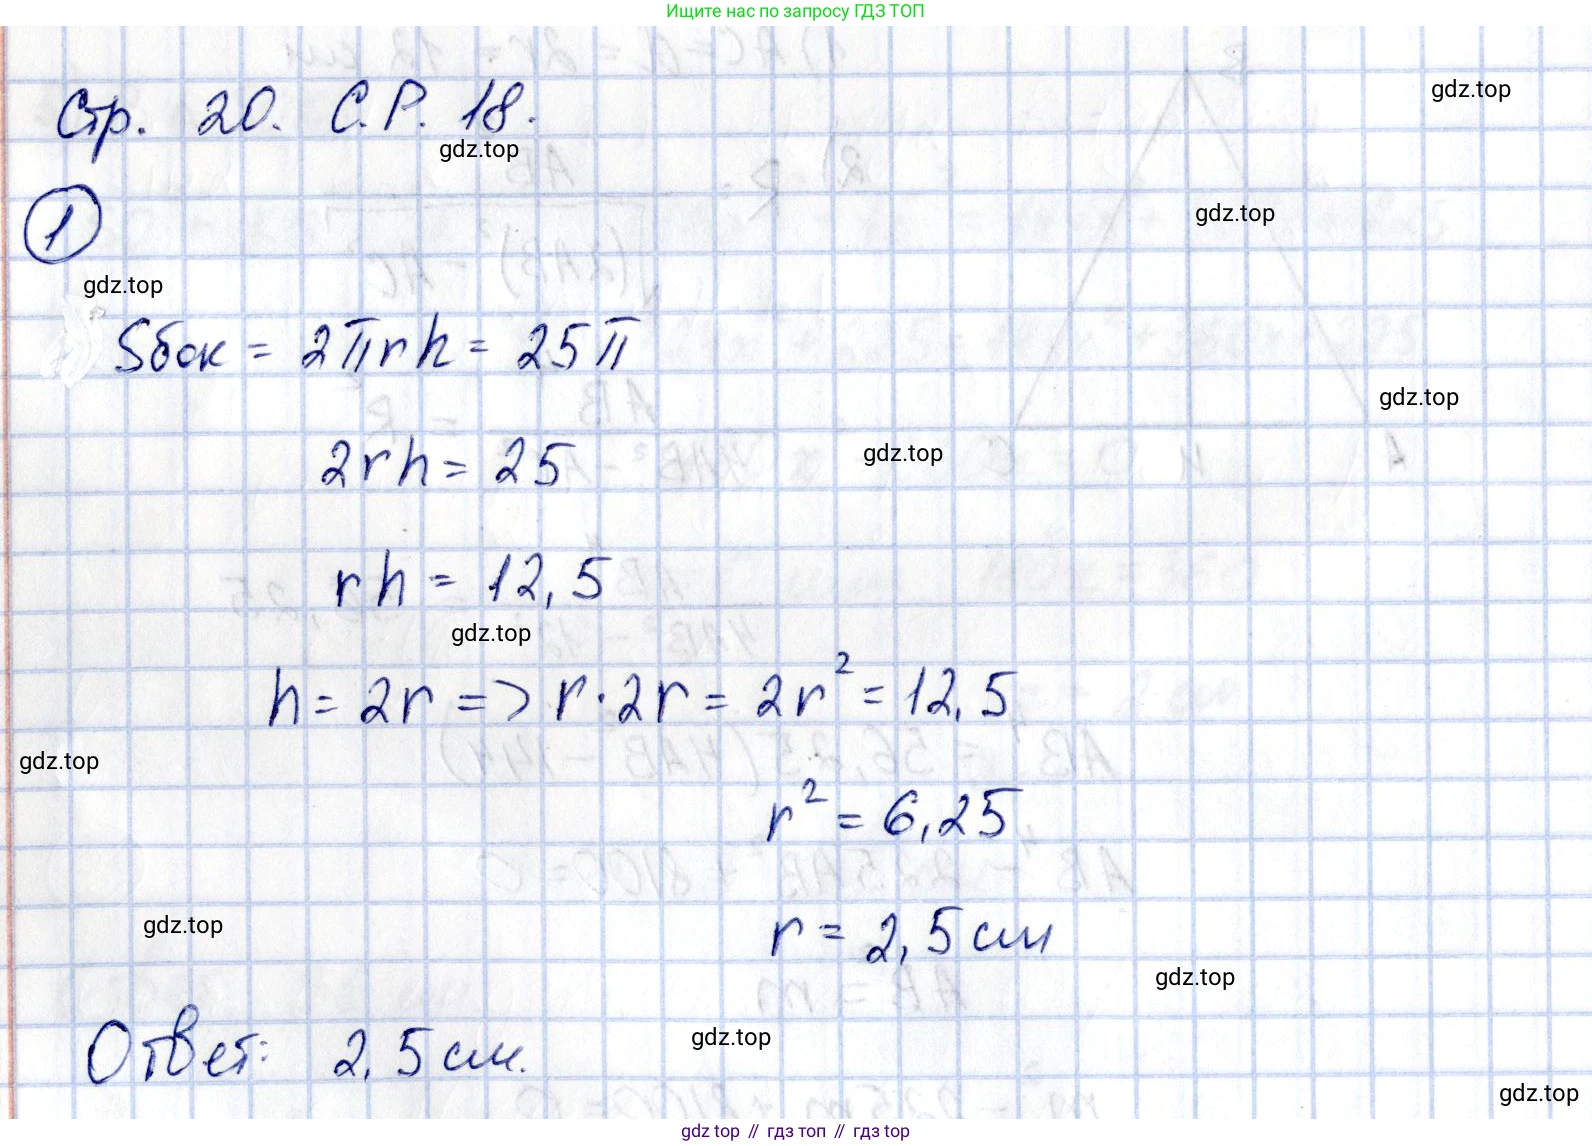 Ищите нас по запросу ГДЗ ТОП
gdz.top
Стр. 20. С.Р. 18.
gdz.top
1
gdz.top
gdz.top
Sбок = 2πrh = 25π
gdz.top
2rh = 25
gdz.top
rh = 12,5
gdz.top
h = 2r => r·2r = 2r² = 12,5
gdz.top
r² = 6,25
gdz.top
r = 2,5 см
gdz.top
Ответ: 2,5 см.
gdz.top
gdz.top
gdz.top // гдз топ // гдз.top